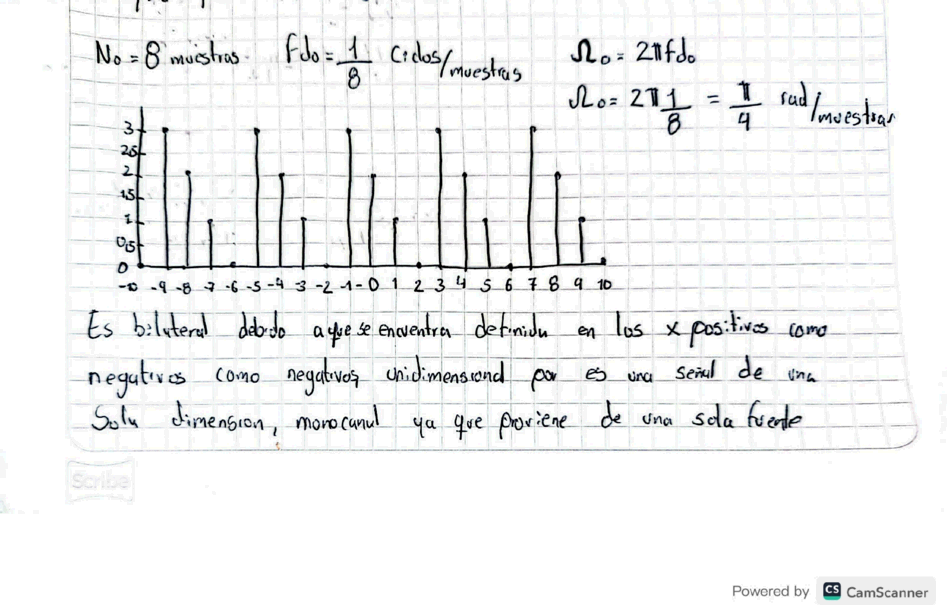 No = 8 muestras   Fdo = 1/8 Ciclos/muestras   Ωo = 2πfdo
Ωo = 2π 1/8 = π/4 rad/muestras
3
25
2
1.5
1
0,5
0
-10 -9 -8 -7 -6 -5 -4 -3 -2 -1 - 0 1 2 3 4 5 6 7 8 9 10
Es bilateral debido a que se encuentra definida en los x positivos como
negativos como negativos, unidimensional por es una señal de una
Sola dimension, monocanal ya que proviene de una sola fuente
Scribe
Powered by CS CamScanner